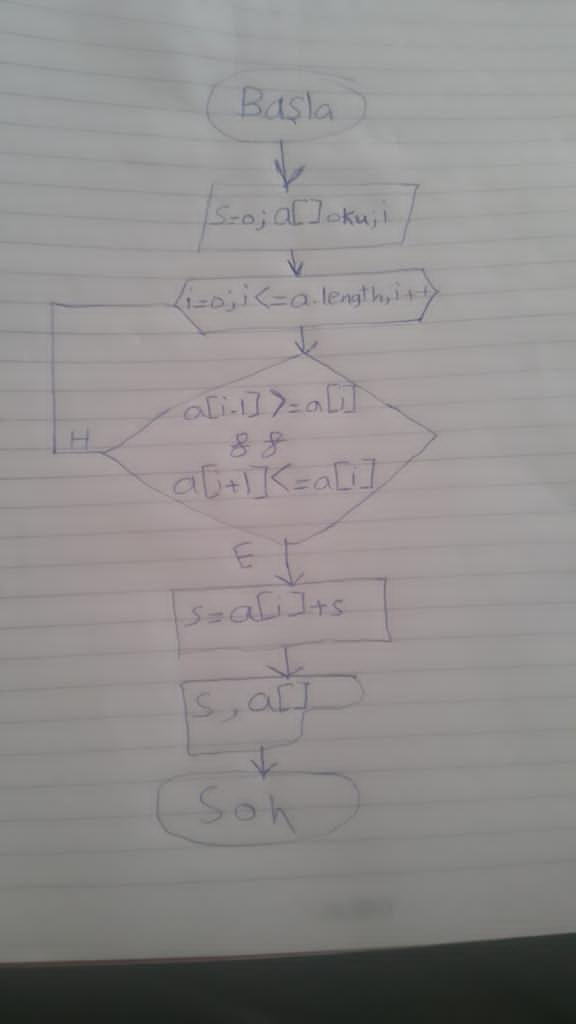 Başla
s=0; a[] oku, i
i=0; i<=a.length, i++
a[i-1] >= a[i]
&&
a[i+1] <= a[i]
H
E
s=a[i]+s
s, a[]
Son